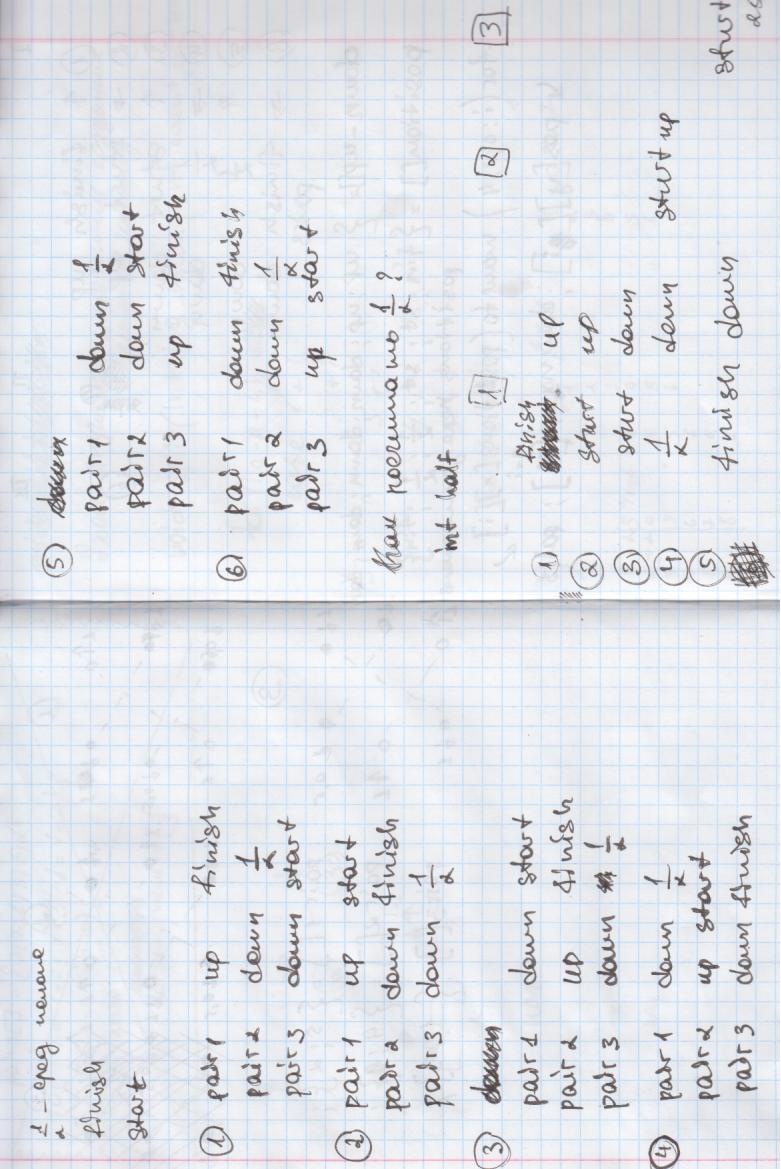 1/2 – сред
finish
start
① pair 1 up finish
pair 2 down 1/2
pair 3 down start
② pair 1 up start
pair 2 down finish
pair 3 down 1/2
③
pair 1 down start
pair 2 up finish
pair 3 down 1/2
④ pair 1 down 1/2
pair 2 up start
pair 3 down finish
⑤
pair 1 down 1/2
pair 2 down start
pair 3 up finish
⑥ pair 1 down finish
pair 2 down 1/2
pair 3 up start
Как посчитать 1/2 ?
int half
1 2 3
① finish up
② start up
③ start down
④ 1/2 down start up
⑤ finish down start